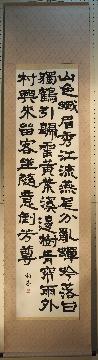 山色蛾眉秀江流燕尾分亂蟬吟落日
獨鶴引歸雲黃葉溪邊樹青帘雨外
村興來留客坐隨意倒芳尊